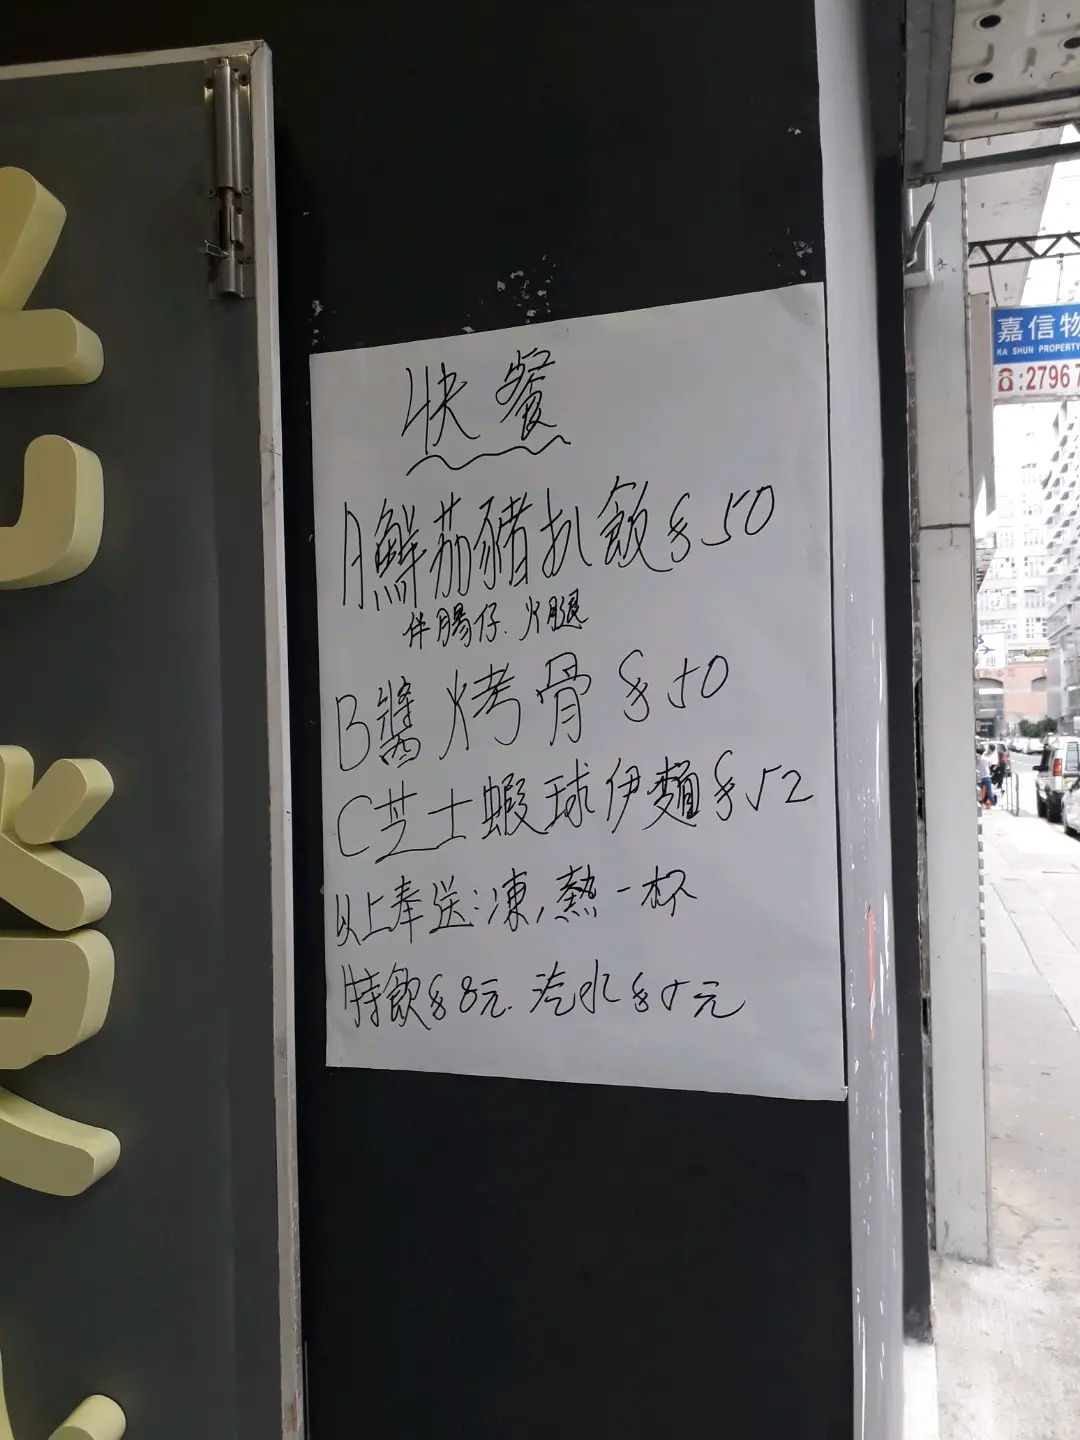 快餐
A鮮茄豬扒飯$50
伴腸仔.火腿
B醬烤骨$50
C芝士蝦球伊麵$52
以上奉送:凍,熱一杯
特飲$8元.汽水$5元
嘉信物
KA SHUN PROPERTY
☎:2796 7